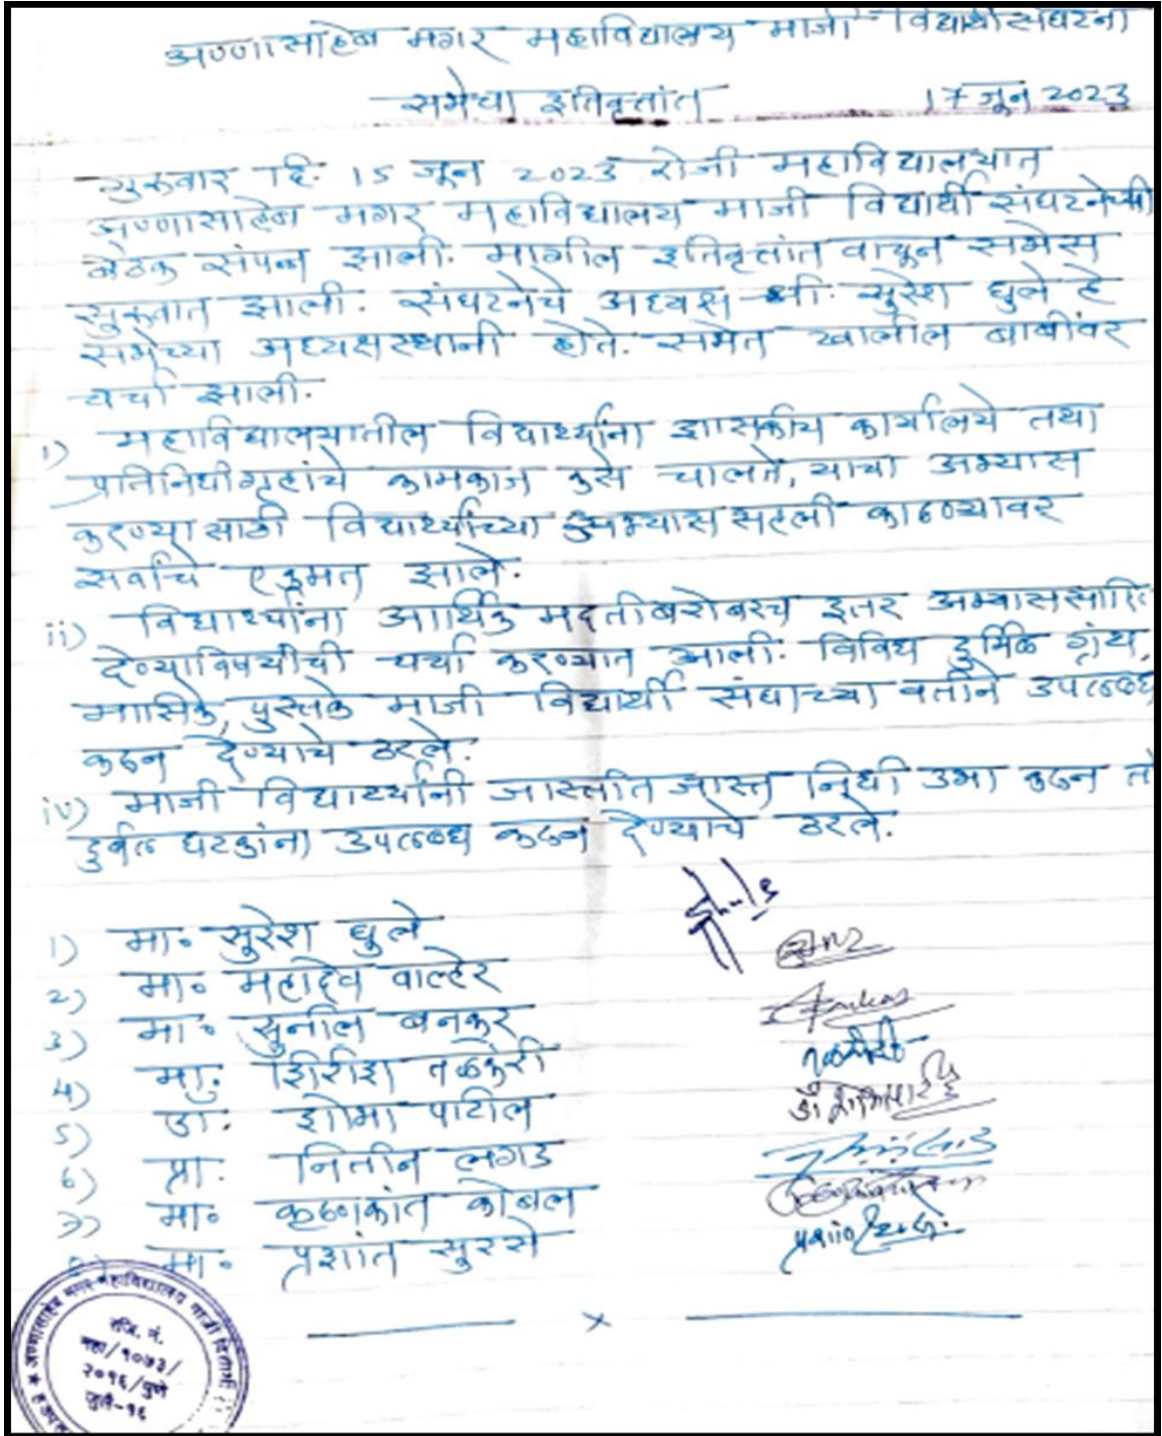 अण्णासाहेब मगर महाविद्यालय माजी विद्यार्थी संघटना
सभेचा इतिवृत्तांत 17 जून 2023
गुरुवार दि. 15 जून 2023 रोजी महाविद्यालयात
अण्णासाहेब मगर महाविद्यालय माजी विद्यार्थी संघटनेची
बैठक संपन्न झाली. मागील इतिवृत्तांत वाचून सभेस
सुरुवात झाली. संघटनेचे अध्यक्ष श्री. सुरेश घुले हे
सभेच्या अध्यक्षस्थानी होते. सभेत खालील बाबींवर
चर्चा झाली.
i) महाविद्यालयातील विद्यार्थ्यांना शासकीय कार्यालये तथा
प्रतिनिधीगृहांचे कामकाज कसे चालते, याचा अभ्यास
करण्यासाठी विद्यार्थ्यांच्या अभ्यास सहली काढण्यावर
सर्वांचे एकमत झाले.
ii) विद्यार्थ्यांना आर्थिक मदतीबरोबरच इतर अभ्याससाहित
देण्याविषयीची चर्चा करण्यात आली. विविध दुर्मिळ ग्रंथ,
मासिके, पुस्तके माजी विद्यार्थी संघाच्या वतीने उपलब्ध
करून देण्याचे ठरले.
iv) माजी विद्यार्थ्यांनी जास्तीत जास्त निधी उभा करून तो
दुर्बल घटकांना उपलब्ध करून देण्याचे ठरले.
1) मा. सुरेश घुले
2) मा. महादेव वाल्हेर
3) मा. सुनील बनकर
4) मा. शिरीश तळेकरी
5) डॉ. शोभा पाटील डॉ शोभा पाटील
6) प्रा. नितीन लगड
7) मा. कृष्णकांत कोबल
8) मा. प्रशांत सुरसे
अण्णासाहेब मगर महाविद्यालय माजी विद्यार्थी
रजि. नं.
महा/१०७३/
२०१६/पुणे
जुलै-१६